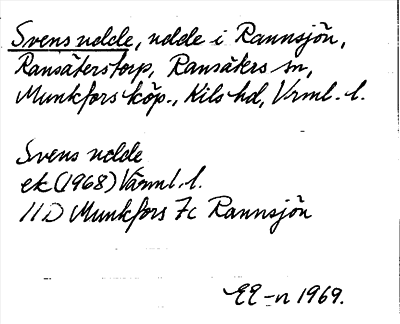 Svens udde, udde i Rannsjön,
Ransäterstorp, Ransäters sn,
Munkfors köp., Kils hd, Vrml. l.
Svens udde
ek (1968) Värml. l.
11D Munkfors 7c Rannsjön
EE-n 1969.